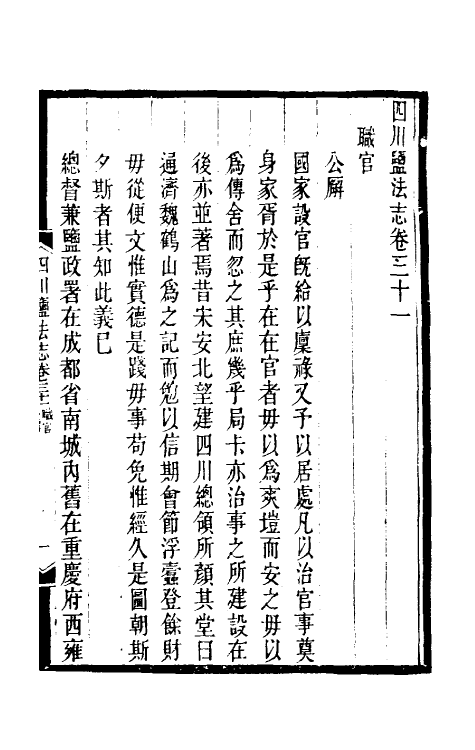 四川鹽法志卷三十一
職官
公廨
國家設官旣給以廩祿又予以居處凡以治官事奠
身家胥於是乎在在官者毋以爲爽塏而安之毋以
爲傳舍而忽之其庶幾乎局卡亦治事之所建設在
後亦並著焉昔宋安北望建四川總領所顏其堂曰
通濟魏鶴山爲之記而勉以信期會節浮蠹登餘財
毋從便文惟實德是踐毋事苟免惟經久是圖朝斯
夕斯者其知此義已
總督兼鹽政署在成都省南城內舊在重慶府西雍
四川鹽法志卷三十一 職官
一